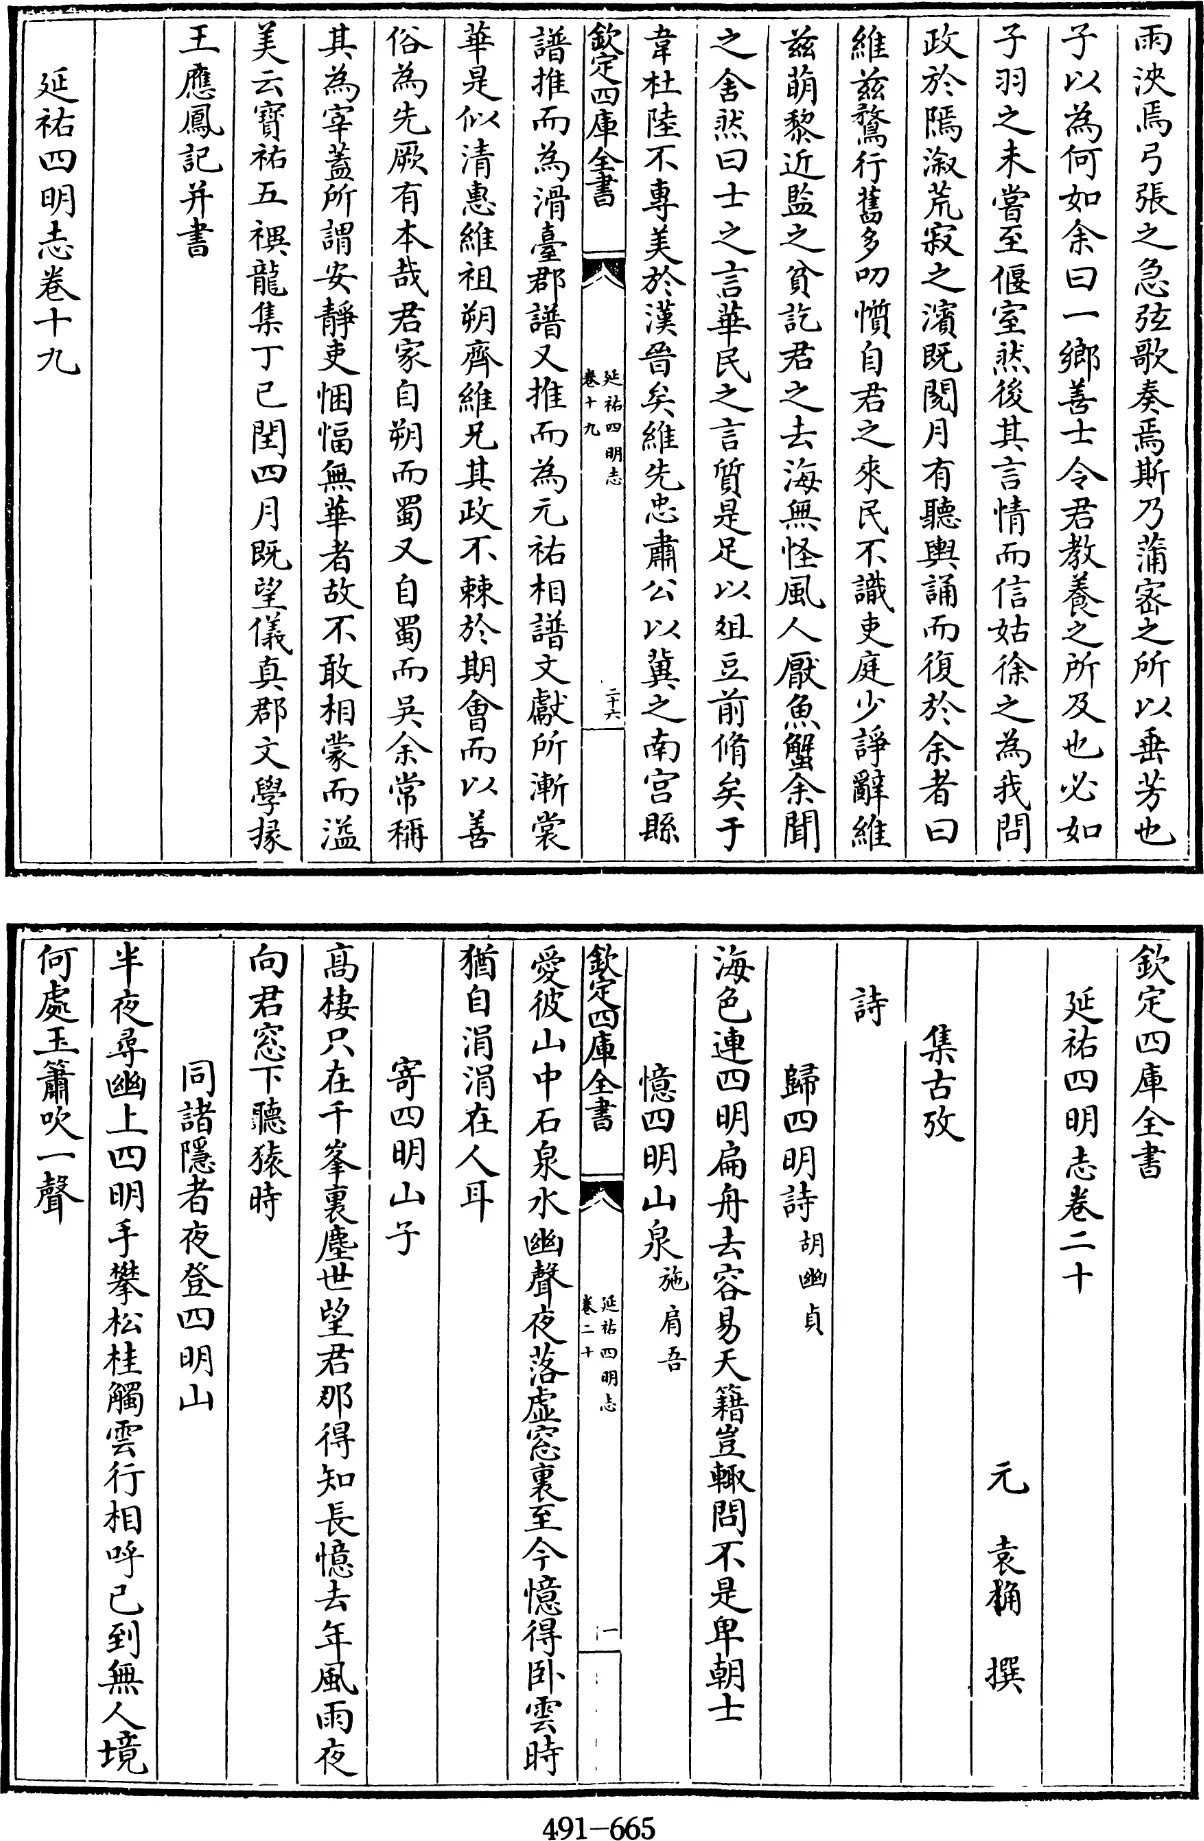 雨泱焉弓張之急弦歌奏焉斯乃蒲宻之所以垂芳也
子以為何如余曰一鄉善士令君教養之所及也必如
子羽之未嘗至偃室然後其言情而信姑徐之為我問
政於隖溆荒寂之濱既閱月有聽輿誦而復於余者曰
維兹鶩行舊多叨懫自君之來民不識吏庭少諍辭維
兹萌黎近監之貧訖君之去海無怪風人厭魚蟹余聞
之舍然曰士之言華民之言質是足以俎豆前脩矣于
韋杜陸不專美於漢晉矣維先忠肅公以冀之南宫縣
欽定四庫全書
延祐四明志
卷十九
二十六
譜推而為滑臺郡譜又推而為元祐相譜文獻所漸裳
華是似清惠維祖朔齊維兄其政不棘於期會而以善
俗為先厥有本哉君家自朔而蜀又自蜀而吳余常稱
其為宰蓋所謂安靜吏悃愊無華者故不敢相蒙而溢
美云寶祐五禩龍集丁巳閏四月既望儀真郡文學掾
王應鳳記并書
延祐四明志卷十九
欽定四庫全書
延祐四明志卷二十
元 袁桷 撰
集古攷
詩
歸四明詩 胡幽貞
海色連四明扁舟去容易天籍豈輙問不是卑朝士
憶四明山泉 施肩吾
欽定四庫全書
延祐四明志
卷二十
一
愛彼山中石泉水幽聲夜落虛窓裏至今憶得卧雲時
猶自涓涓在人耳
寄四明山子
高棲只在千峯裏塵世望君那得知長憶去年風雨夜
向君窓下聽猿時
同諸隱者夜登四明山
半夜尋幽上四明手攀松桂觸雲行相呼已到無人境
何處玉簫吹一聲
491-665